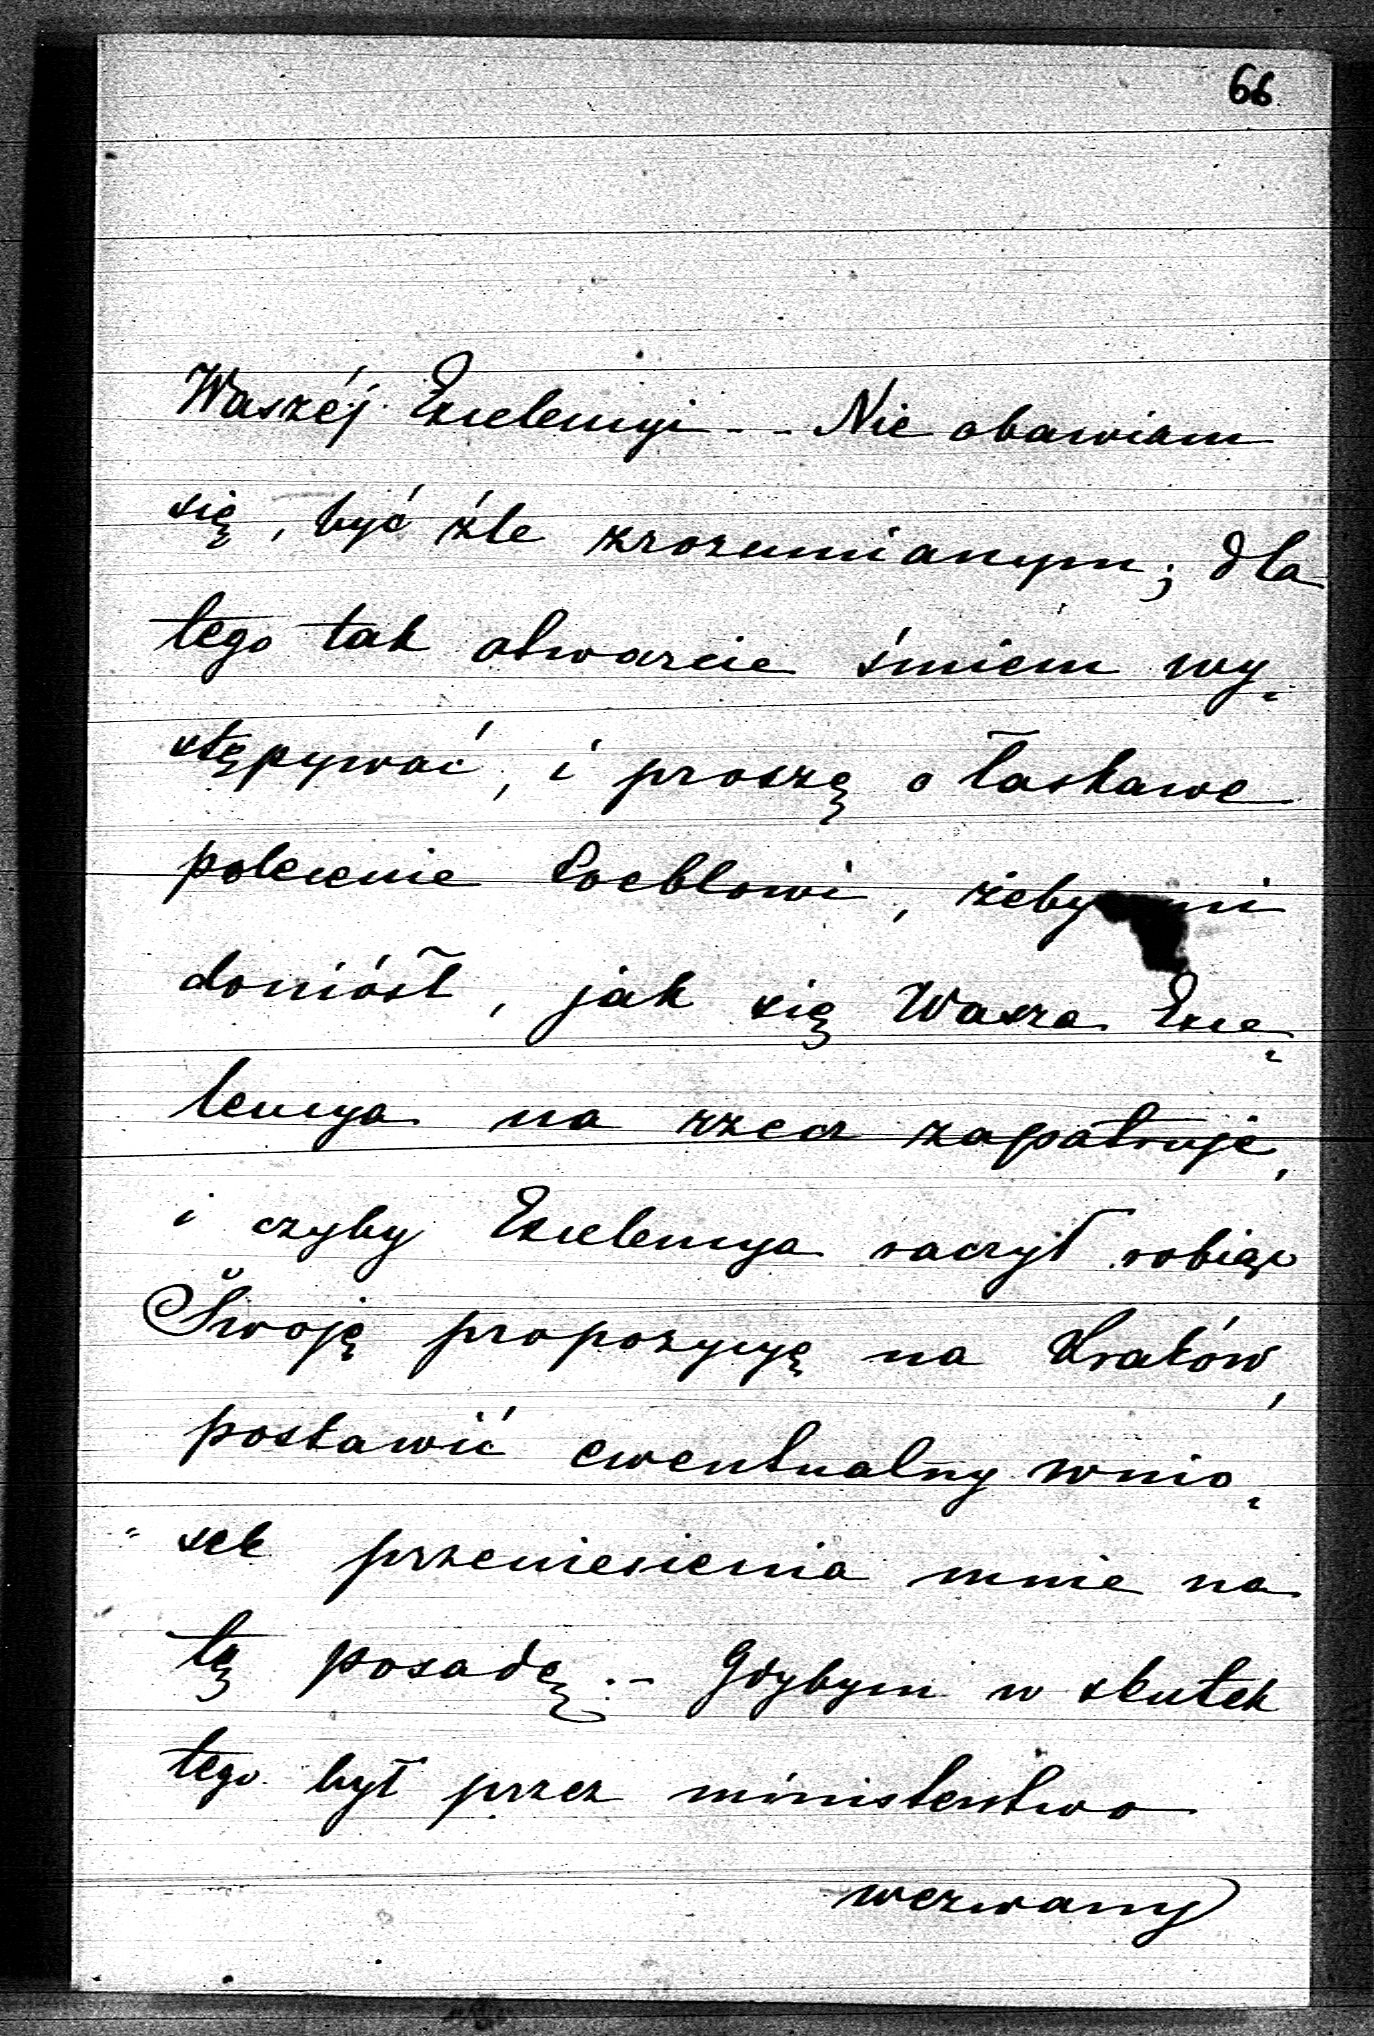 66
Waszéj Excelencyi - - Nie obawiam
się, być źle zrozumianym; dla
tego tak otwarcie śmiem wy-
stępywać, i proszę o łaskawe
polecenie Loeblowi, żeby mi
doniósł, jak się Wasza Exce-
lencya na rzecz zapatruje,
i czyby Excelencya raczył robiąc
Swoję propozycyę na Kraków,
postawić ewentualny wnio-
sek przeniesienia mnie na
tę posadę. - Gdybym w skutek
tego był przez ministerstwo
wezwany